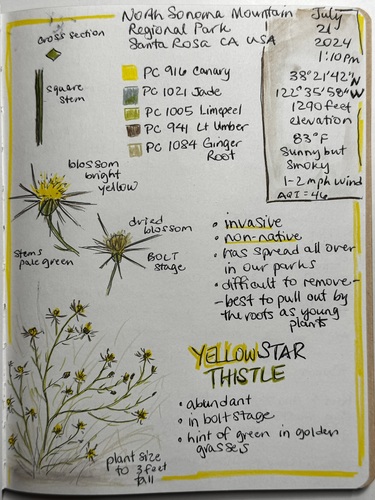 North Sonoma Mountain
Regional Park
Santa Rosa CA USA
July
21
2024
1:10pm
38°21'42"N
122°35'58"W
1290 feet
elevation
83°F
Sunny but
Smoky
1-2 mph wind
AQI = 46
cross section
square
stem
PC 916 Canary
PC 1021 Jade
PC 1005 Limepeel
PC 941 Lt Umber
PC 1084 Ginger
Root
blossom
bright
yellow
stems
pale green
dried
blossom
BOLT
STAGE
• invasive
• non-native
• has spread all over
in our parks
• difficult to remove-
-best to pull out by
the roots as young
plants
YELLOW STAR
THISTLE
• abundant
• in bolt stage
• hint of green in golden
grasses
plant size
to 3 feet
tall